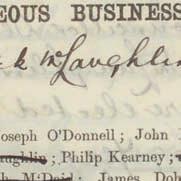 EOUS BUSINESS
k McLaughlin
Joseph O'Donnell; John
aughlin; Philip Kearney;
h M'Daid; James Doh